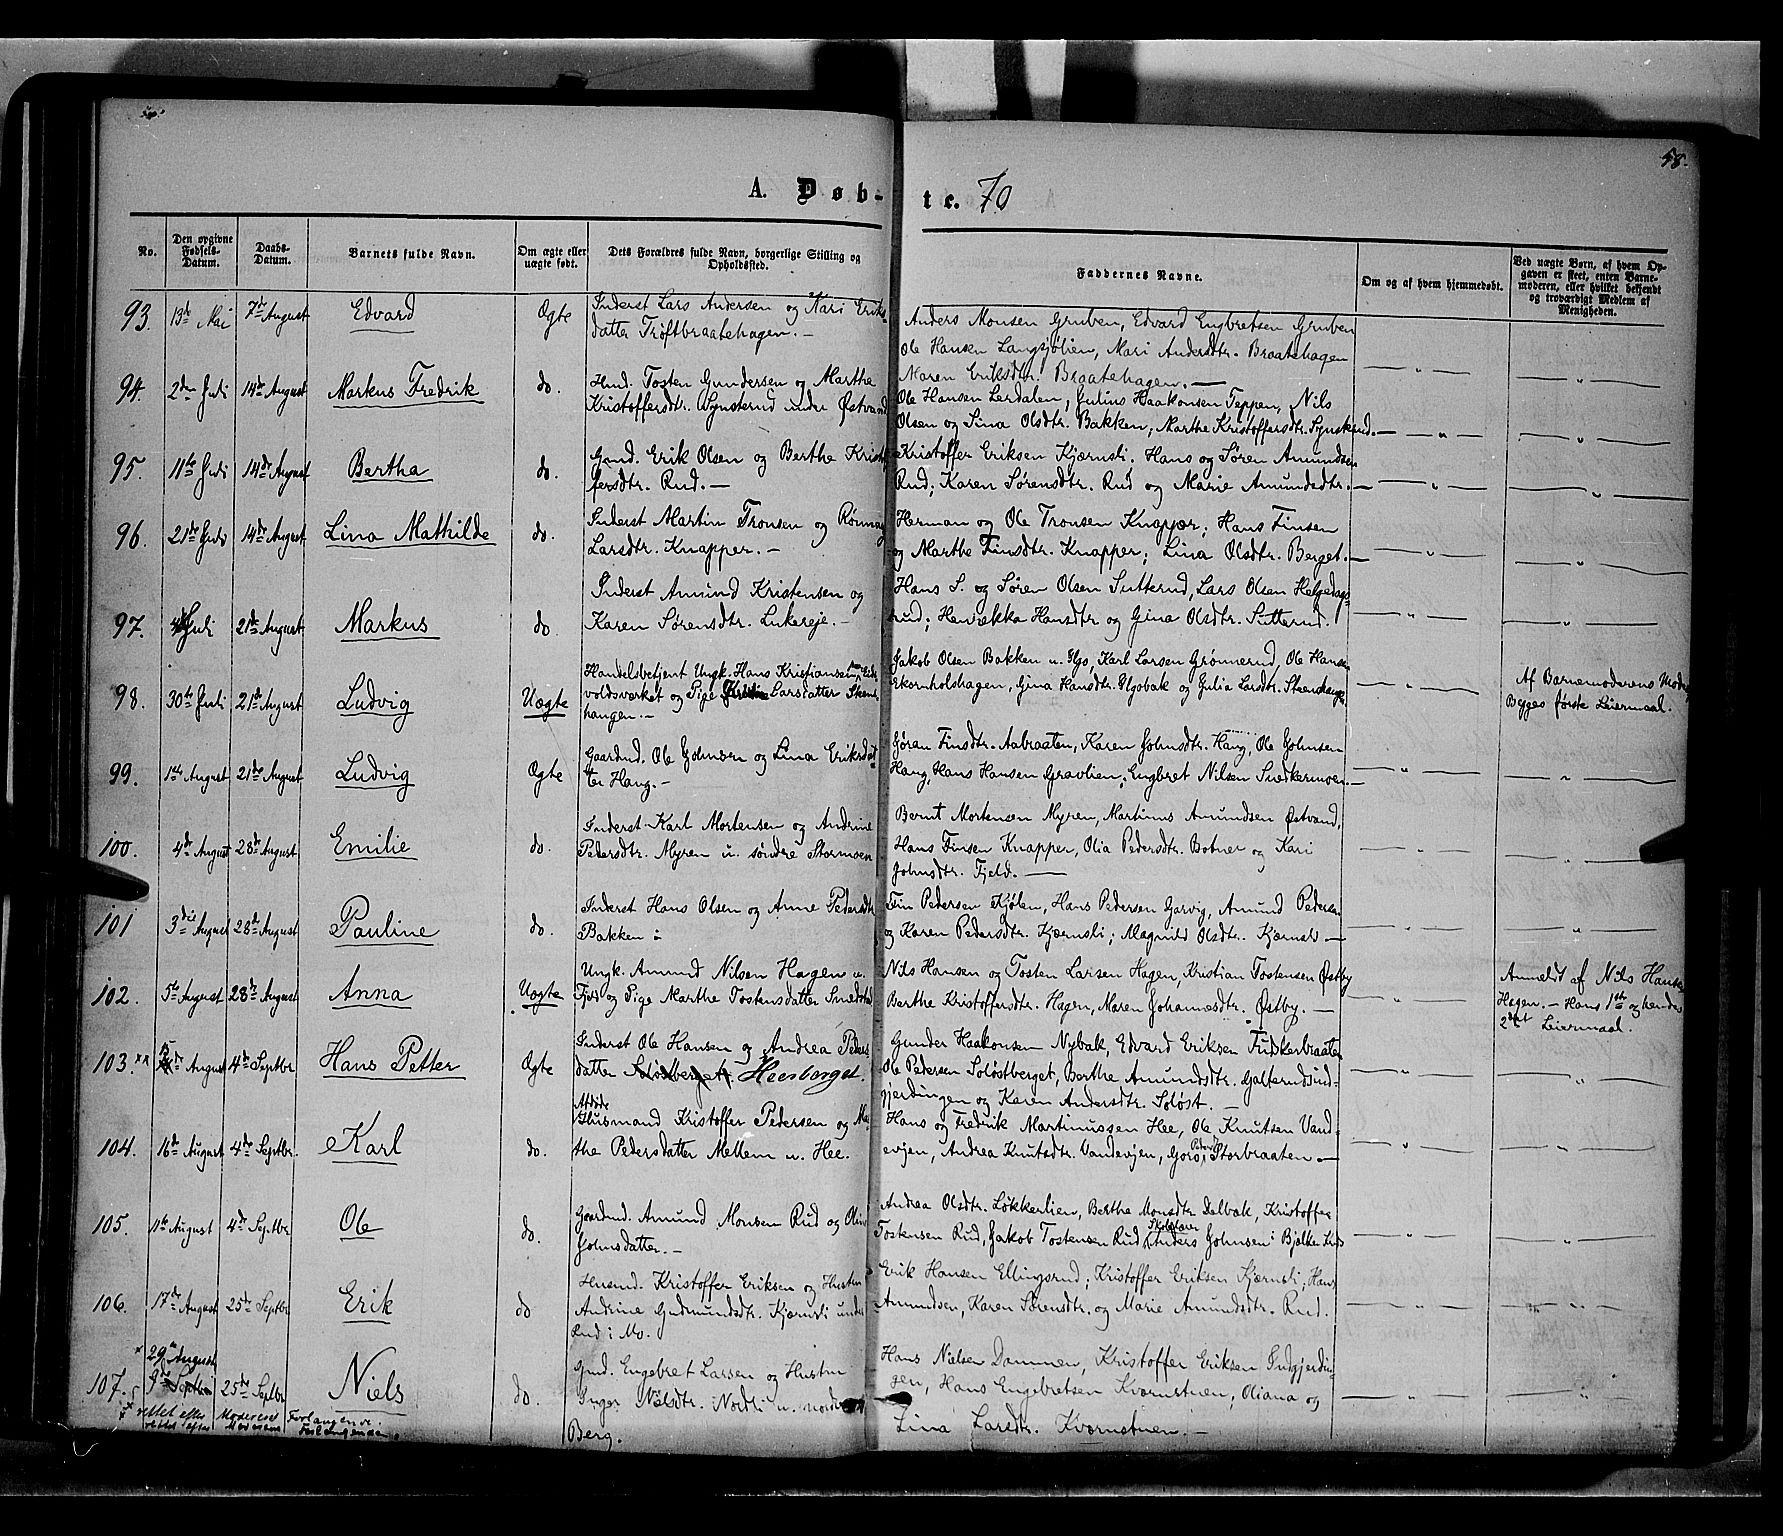 58.
A. Døb-te. 70
No.
Den opgivne Fødsels-Datum.
Daabs-Datum.
Barnets fulde Navn.
Om ægte eller uægte født.
Dets Forældres fulde Navn, borgerlige Stilling og Opholdssted.
Faddernes Navne.
Om og af hvem hjemmedøbt.
Ved uægte Børn, af hvem Opgaven er skeet, enten Barnemoderen, eller hvilket bekjendt og troværdigt Medlem af Menigheden.
93. 13de Mai 7de August Edvard Ægte
Inderst Lars Andersen og Kari Eriks-
datter Trøftbraatehagen. —
Anders Monsen Gruben, Edvard Engbretsen Gruben
Ole Hansen Langsjølien, Mari Andersdtr. Braatehagen
Maren Eriksdtr. Braatehagen. —
94. 2den Juli 14de August Markus Fredrik do.
Husd. Tosten Gundersen og Marthe
Kristoffersdtr. Synsterud under Østvand
Ole Hansen Lerdalen, Julius Haakonsen Teppen, Nils
Olsen og Lina Olsdtr. Bakken; Marthe Kristoffersdtr. Synsterud. —
95. 11te Juli 14de August Bertha do.
Gmd. Erik Olsen og Berthe Kristof-
fersdtr. Rud. —
Kristoffer Eriksen Kjærnsli. Hans og Søren Amundsen
Rud; Karen Sørensdtr. Rud og Marie Amundsdtr. —
96. 21de Juli 14de August Lina Mathilde do.
Inderst Martin Tronsen og Rønnaug
Larsdtr. Knapper. —
Herman og Ole Tronsen Knapper; Hans Finsen
og Marthe Finsdtr. Knapper; Lina Olsdtr. Berget. —
97. Juli 21de August Markus do.
Inderst Amund Kristensen og
Karen Sørensdtr. Lukereje. —
Hans S. og Søren Olsen Sutterud, Lars Olsen Helgedags-
rud; Henrikka Hansdtr og Gina Olsdtr. Sutterud.
98. 30te Juli 21de August Ludvig Uægte
Handelsbetjent Ungk. Hans Kristiansen, Eids-
voldsværket og Pige Larsdatter Steens-
hangen. —
Jakob Olsen Bakken u. Algo, Karl Larsen Grønnerud, Ole Hansen
Ekornholshagen, Gina Hansdtr. Algobak og Julia Larsdtr. Steenshangen
Af Barnemoderens Moder
Begges første Leiermaal.
99. 1ste August 21de August Ludvig Ægte
Gaardmd. Ole Johnsen og Lina Eriksdat-
ter Haug. —
Gøran Finsdtr. Aabraaten, Karen Johnsdtr. Haug, Ole Johnsen
Haug, Hans Hansen Gravlien; Engbret Nilsen Snedkermoen. —
100. 4de August 28de August Emilie do.
Inderst Karl Mortensen og Andrine
Pedersdtr. Myren u. søndre Stormoen
Bernt Mortensen Myren, Martinus Amundsen Østvand,
Hans Finsen Knapper, Olia Pedersdtr. Botner og Kari
Johnsdtr. Fjeld. —
101 3die August 28de August Pauline do.
Inderst Hans Olsen og Anne Pedersdtr
Bakken
Fin Pedersen Kjølen, Hans Pedersen Garvig, Amund Pedersen
og Karen Pedersdtr. Kjærnsli; Magnild Olsdtr. Kjærnsli —
102. 5te August 28de August Anna Uægte
Ungk. Amund Nilsen Hagen u.
Fjeld og Pige Marthe Tostensdatter Smedstad
Nils Hansen og Tosten Larsen Hagen, Kristian Tostensen Østby
Berthe Kristoffersdtr. Hagen, Maren Johannesdtr. Østby. —
Anmeldt af Nils Hansen
Hagen. — Hans 1ste og hendes
2det Leiermaal.
103. xx August 4de Septbr Hans Petter Ægte
Inderst Ole Hansen og Andrea Peders-
datter Soløstberget. Heesberget.
Gunder Haakonsen Nybak, Edvard Eriksen Funkerbraaten
Ole Pedersen Soløstberget, Berthe Amundsdtr. Galterudsind-
gjerdingen og Karen Andersdtr. Soløst. —
104. 16de August 4de Septbr. Karl do.
Afdøde
Husmand Kristoffer Pedersen og Mar-
the Pedersdatter Mellem u. Hee.
Hans og Fredrik Martinussen Hee, Ole Knutsen Vand-
evjen, Andrea Knutsdtr. Vandevjen, Goro Pedersdtr Storbraaten —
105. 11te August 4de Septbr Ole do.
Gaardmd. Amund Monsen Rud og Oline
Johnsdatter. —
Andrea Olsdtr. Løkkerlien, Berthe Monsdtr Dalbak, Kristoffer
Tostensen Rud, Jakob Tostensen Rud, Skolelærer Anders Johnsen i Bjelke
106. 17de August 25de Septbr Erik do
Husmd. Kristoffer Eriksen og Hustru
Andrine Gudmundsdtr. Kjærnsli under
Rud i Mo.
Erik Hansen Ellingsrud; Kristoffer Eriksen Kjærnsli; Hans
Amundsen, Karen Sørensdtr. og Marie Amundsdtr. Rud.
107. x 29de August 9de Septbr 25de Septbr Niels do.
Gmd. Engebret Larsen og Hustru
Inger Nilsdtr. Nordli u. nordre
Berg.
Hans Nielsen Dammen, Kristoffer Eriksen Indgjerdin-
gen, Hans Engebretsen Kværnstuen, Oliana og
Lina Larsdtr. Kværnstuen. —
x rettet efter Moderens Forlangende.
xx rettet efter Moderens Forlangende.